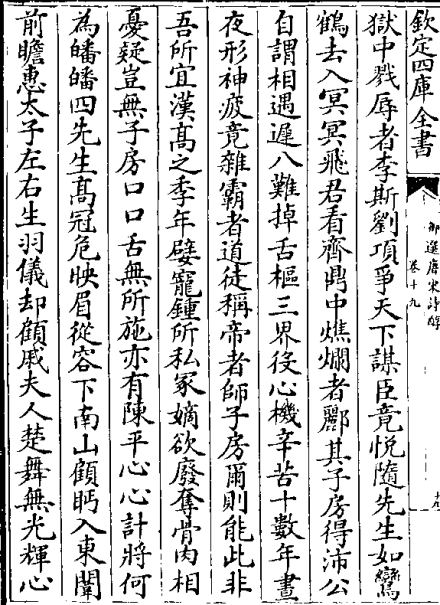 欽定四庫全書
御選唐宋詩醇
卷十九
獄中戮辱者李斯劉項爭天下謀臣竟悅隨先生如鸞
鶴去入冥冥飛君看齊鼎中燋爛者酈其子房得沛公
自謂相遇遲八難掉舌樞三界役心機辛苦十數年晝
夜形神疲竟雜霸者道徒稱帝者師子房爾則能此非
吾所宜漢髙之季年嬖寵鍾所私冢嫡欲廢奪骨肉相
憂疑豈無子房口口舌無所施亦有陳平心心計將何
為皤皤四先生髙冠危映眉從容下南山顧眄入東闈
前瞻惠太子左右生羽儀却顧戚夫人楚舞無光輝心